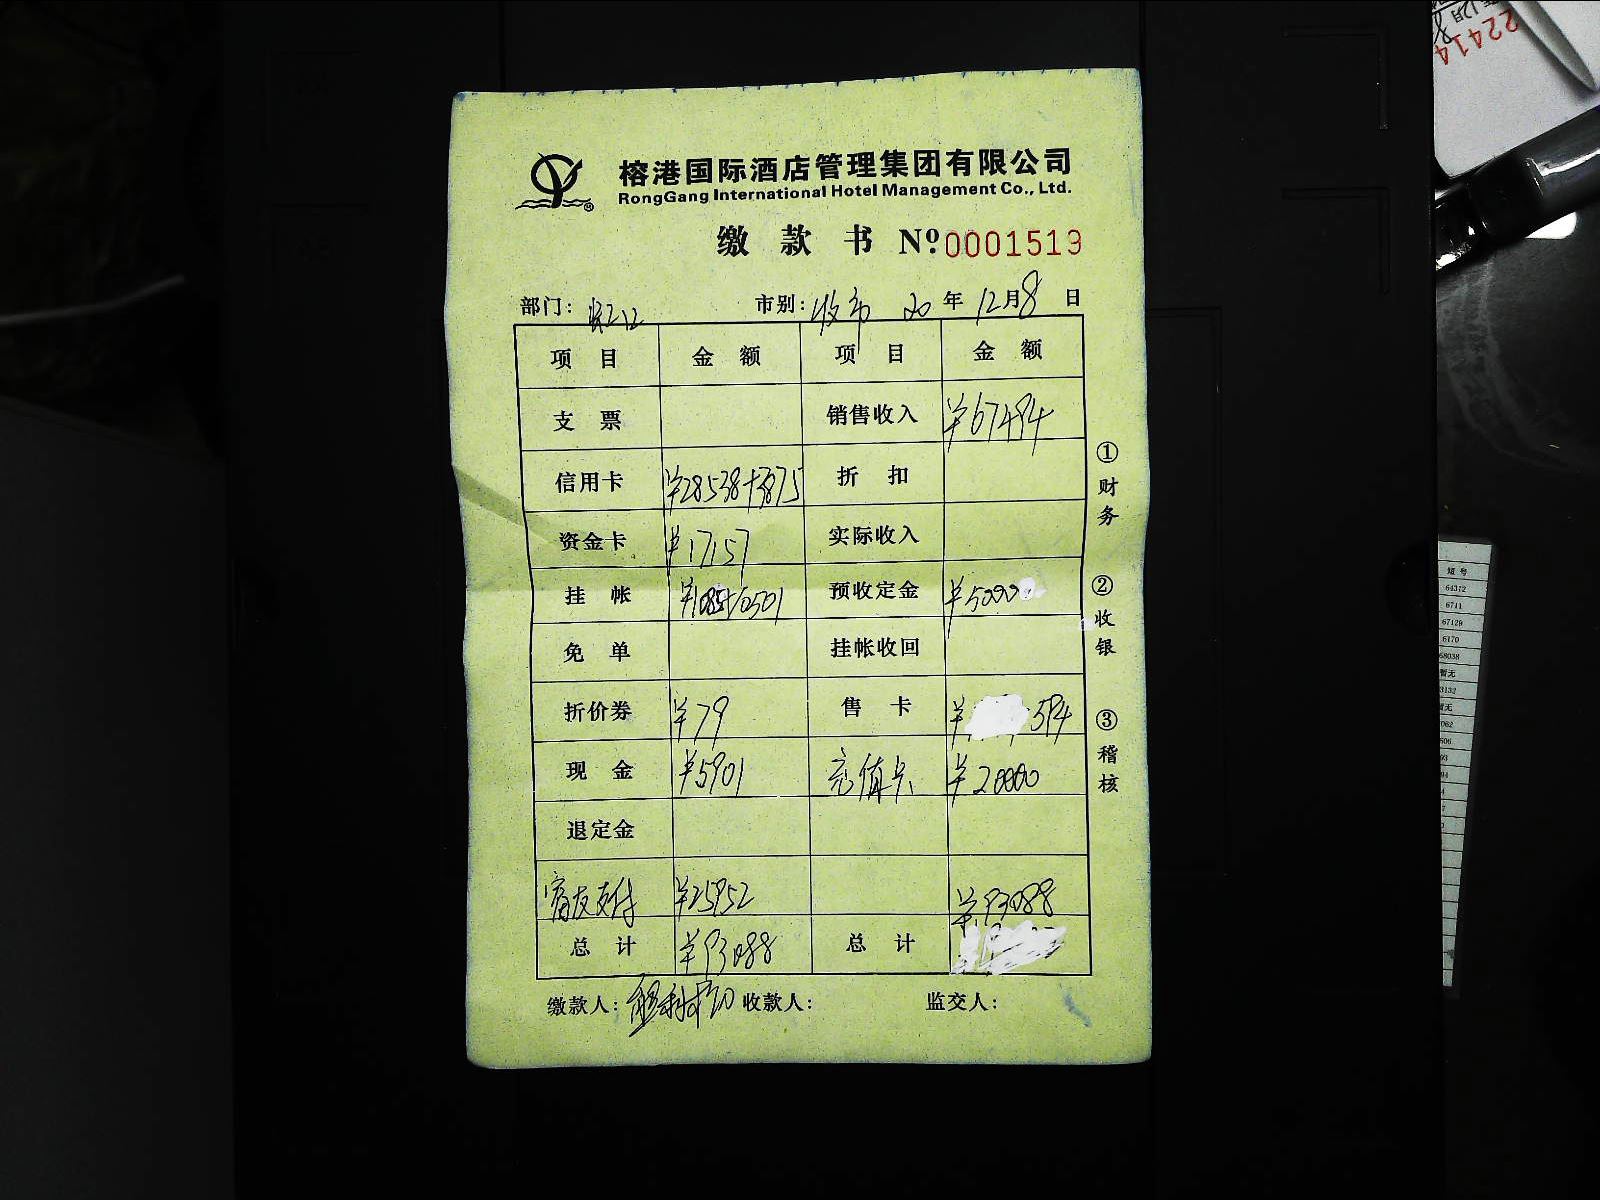 榕港国际酒店管理集团有限公司
RongGang International Hotel Management Co., Ltd.
缴款书 Nº 0001519
部门: 市别: 收市 20 年 12 月 8 日
项目 金额 项目 金额
支票 销售收入 ¥67494
信用卡 ¥28538+3875 折扣
资金卡 ¥17157 实际收入
挂帐 ¥1085+10501 预收定金 ¥5000
免单 挂帐收回
折价券 ¥79 售卡 ¥ 594
现金 ¥5901 充值卡 ¥20000
退定金
支付 ¥25952 ¥93088
总计 ¥93088 总计
缴款人: 收款人: 监交人:
①财务
②收银
③稽核
22414
短号
64312
6711
67129
6170
68038
暂无
3132